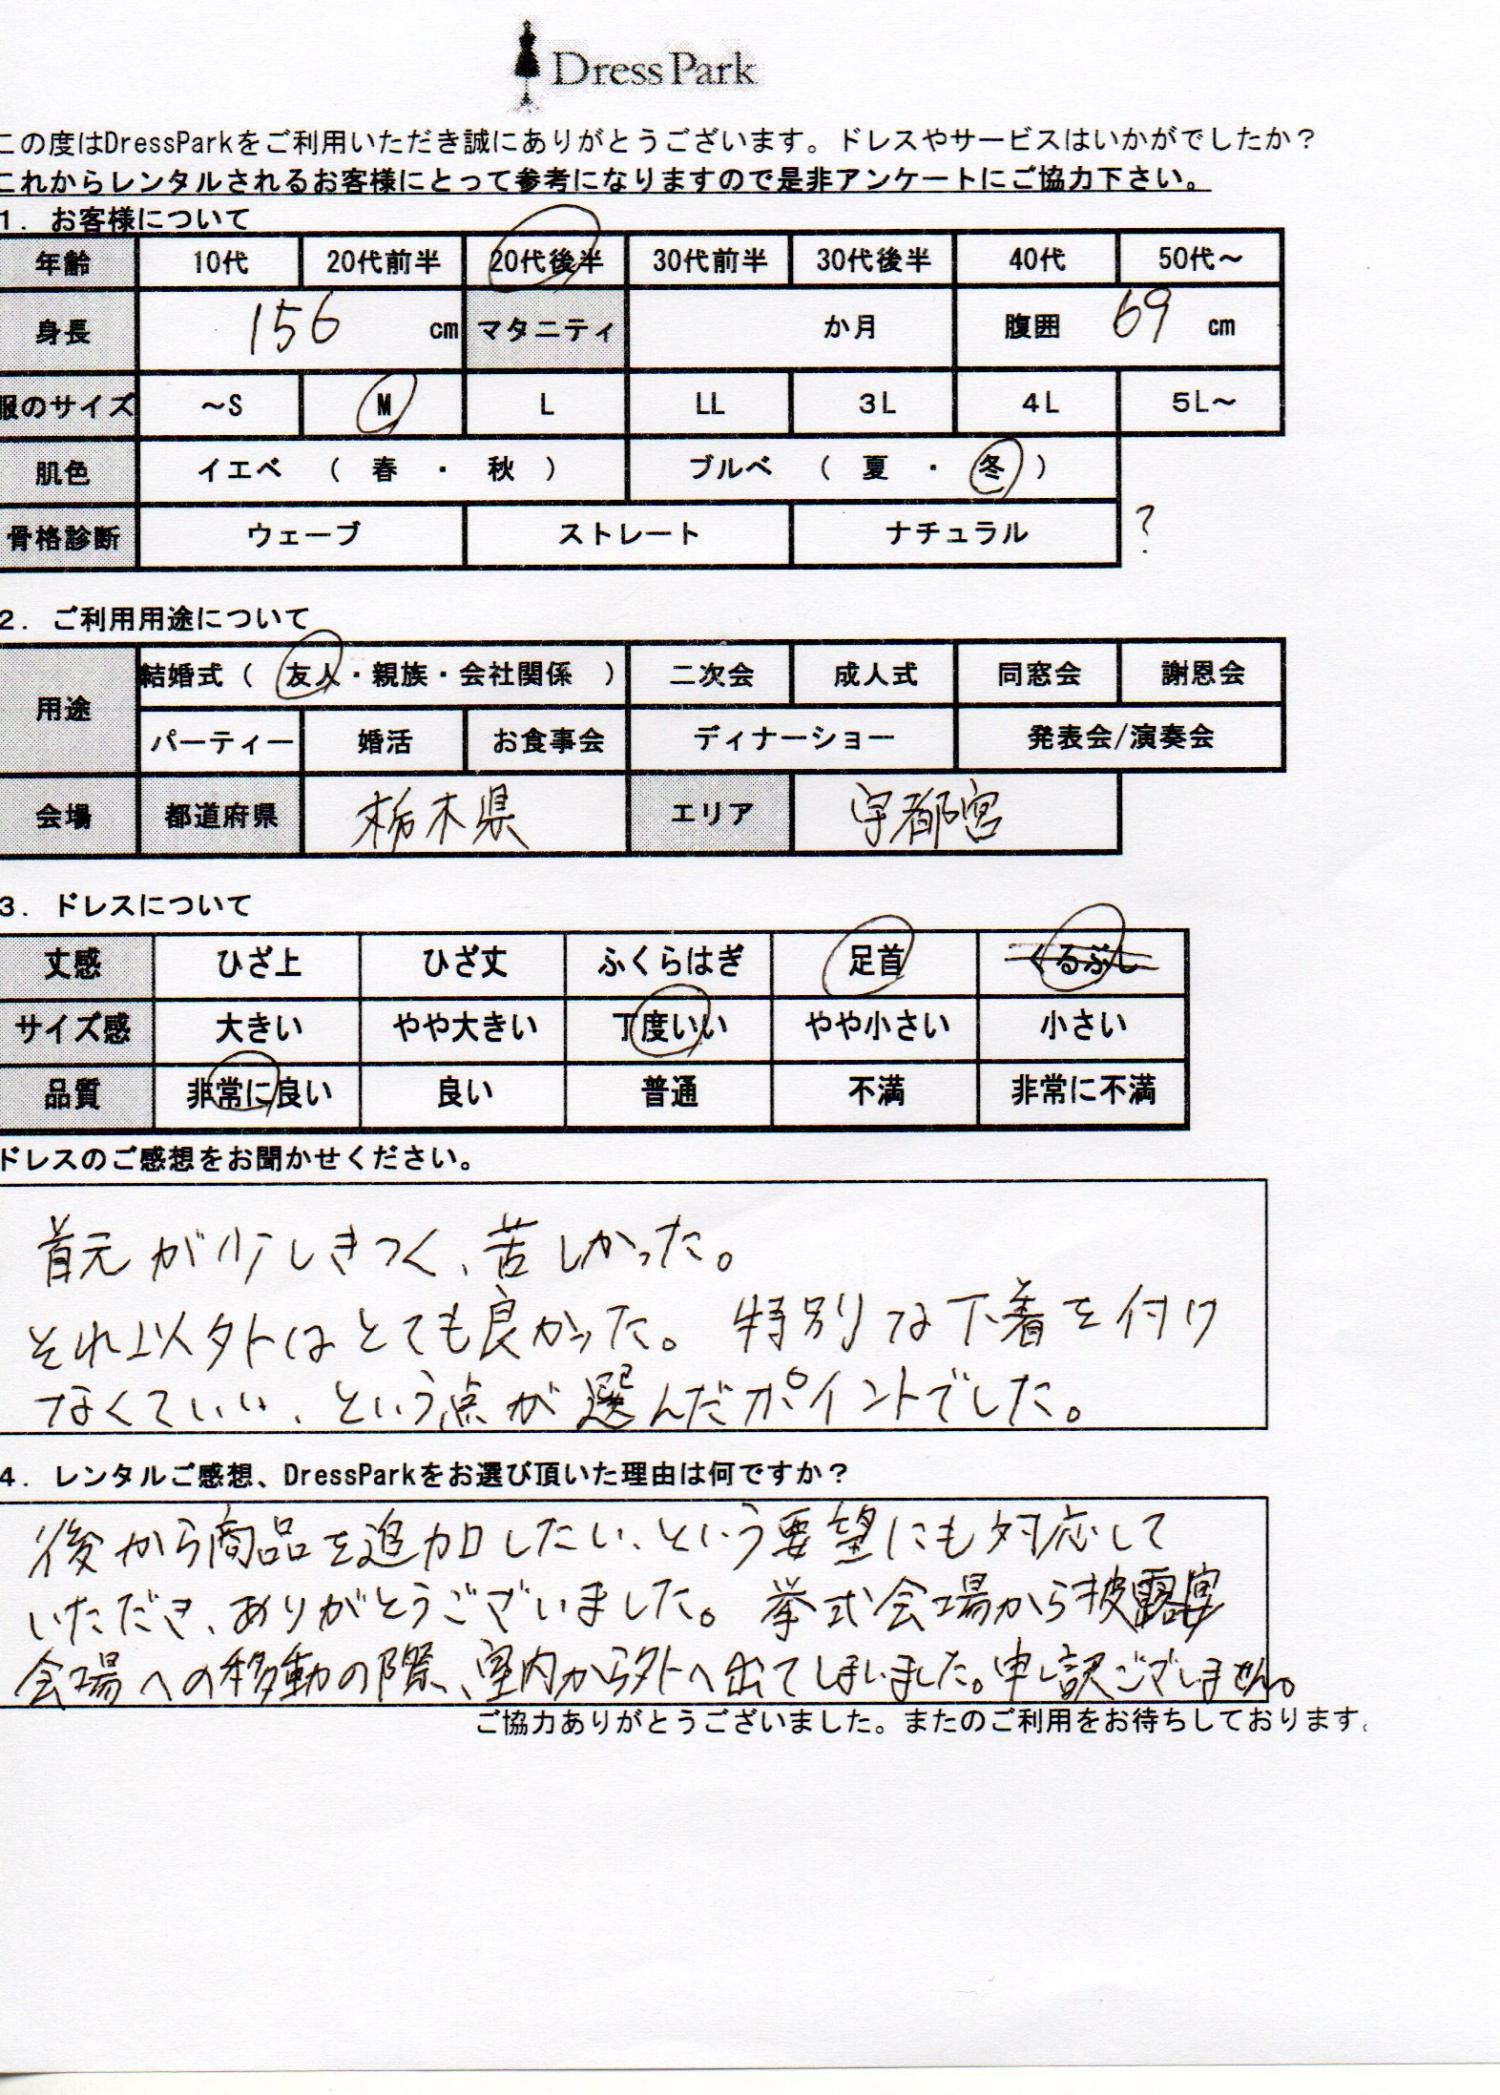 Dress Park
この度はDressParkをご利用いただき誠にありがとうございます。ドレスやサービスはいかがでしたか？
これからレンタルされるお客様にとって参考になりますので是非アンケートにご協力下さい。
1. お客様について
年齢 10代 20代前半 20代後半 30代前半 30代後半 40代 50代～
身長 156 cm マタニティ か月 腹囲 69 cm
服のサイズ ～S M L LL 3L 4L 5L～
肌色 イエベ （ 春 ・ 秋 ） ブルベ （ 夏 ・ 冬 ）
骨格診断 ウェーブ ストレート ナチュラル ?
2. ご利用用途について
用途 結婚式（ 友人・親族・会社関係 ） 二次会 成人式 同窓会 謝恩会
パーティー 婚活 お食事会 ディナーショー 発表会/演奏会
会場 都道府県 栃木県 エリア 宇都宮
3. ドレスについて
丈感 ひざ上 ひざ丈 ふくらはぎ 足首 くるぶし
サイズ感 大きい やや大きい 丁度いい やや小さい 小さい
品質 非常に良い 良い 普通 不満 非常に不満
ドレスのご感想をお聞かせください。
首元が少しきつく、苦しかった。
それ以外はとても良かった。特別な下着を付け
なくていい、という点が選んだポイントでした。
4. レンタルご感想、DressParkをお選び頂いた理由は何ですか？
後から商品を追加したい、という要望にも対応して
いただき、ありがとうございました。挙式会場から披露宴
会場への移動の際、室内から外へ出てしまいました。申し訳ございません。
ご協力ありがとうございました。またのご利用をお待ちしております。